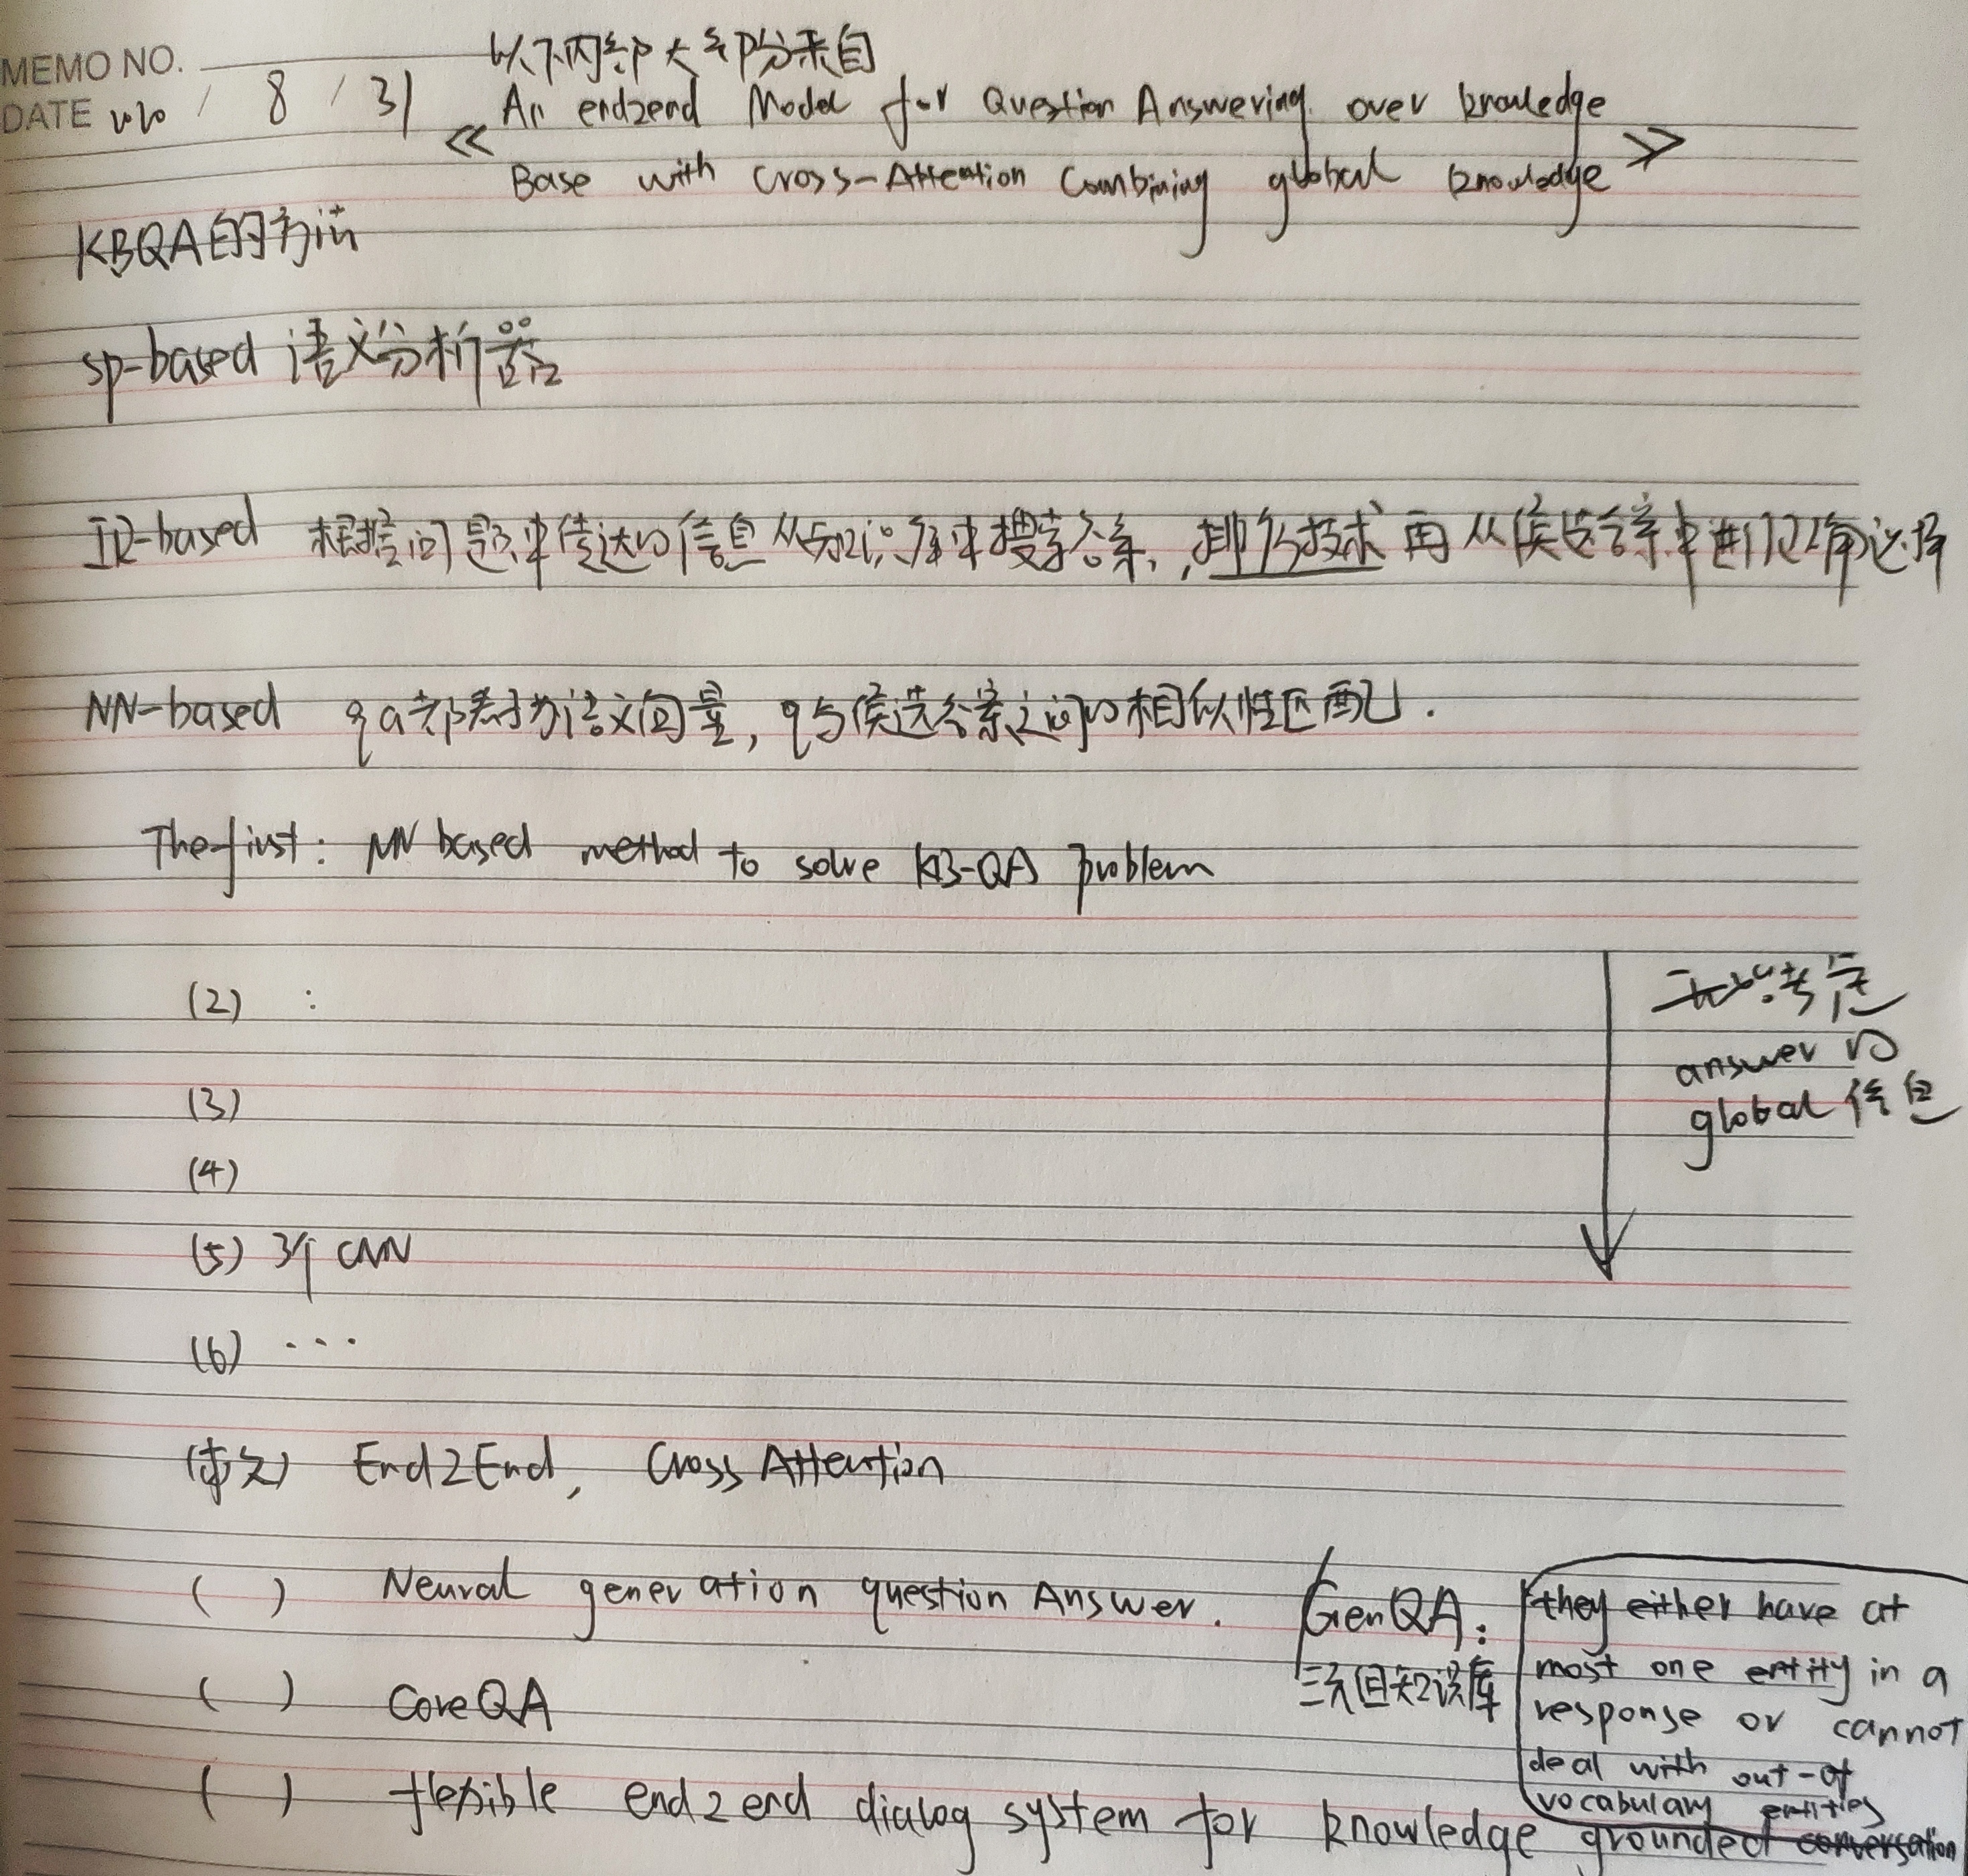 MEMO NO.
DATE / 8 / 31
以下内部大部分来自
《An end2end Model for Question Answering over knowledge
Base with Cross-Attention Combining global knowledge》
KBQA的方法
sp-based 语义分析器
IR-based 根据问题中传达的信息从知识库中搜索答案,,排名技术再从候选答案中进行正确选择
NN-based q a都表示为语义向量, q与候选答案之间的相似性匹配.
The first: NN based method to solve KB-QA problem
(2) :
考虑
answer的
global信息
(3)
(4)
(5) 3个 CNN
(6) ...
(本文) End2End, Cross Attention
( ) Neural generation question Answer.
GenQA:
三元组知识库
they either have at
most one entity in a
response or cannot
deal with out-of
vocabulary entities
( ) CoreQA
( ) flexible end2end dialog system for knowledge grounded conversation